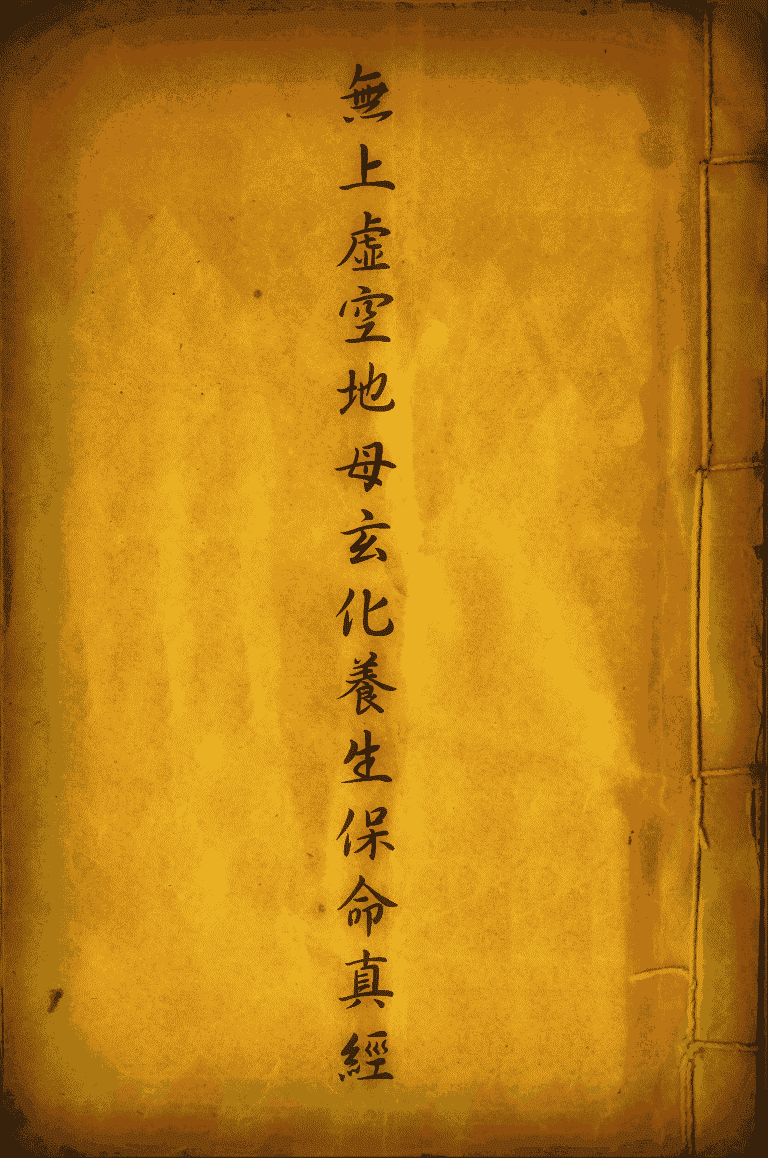 無上虛空地母玄化養生保命真經